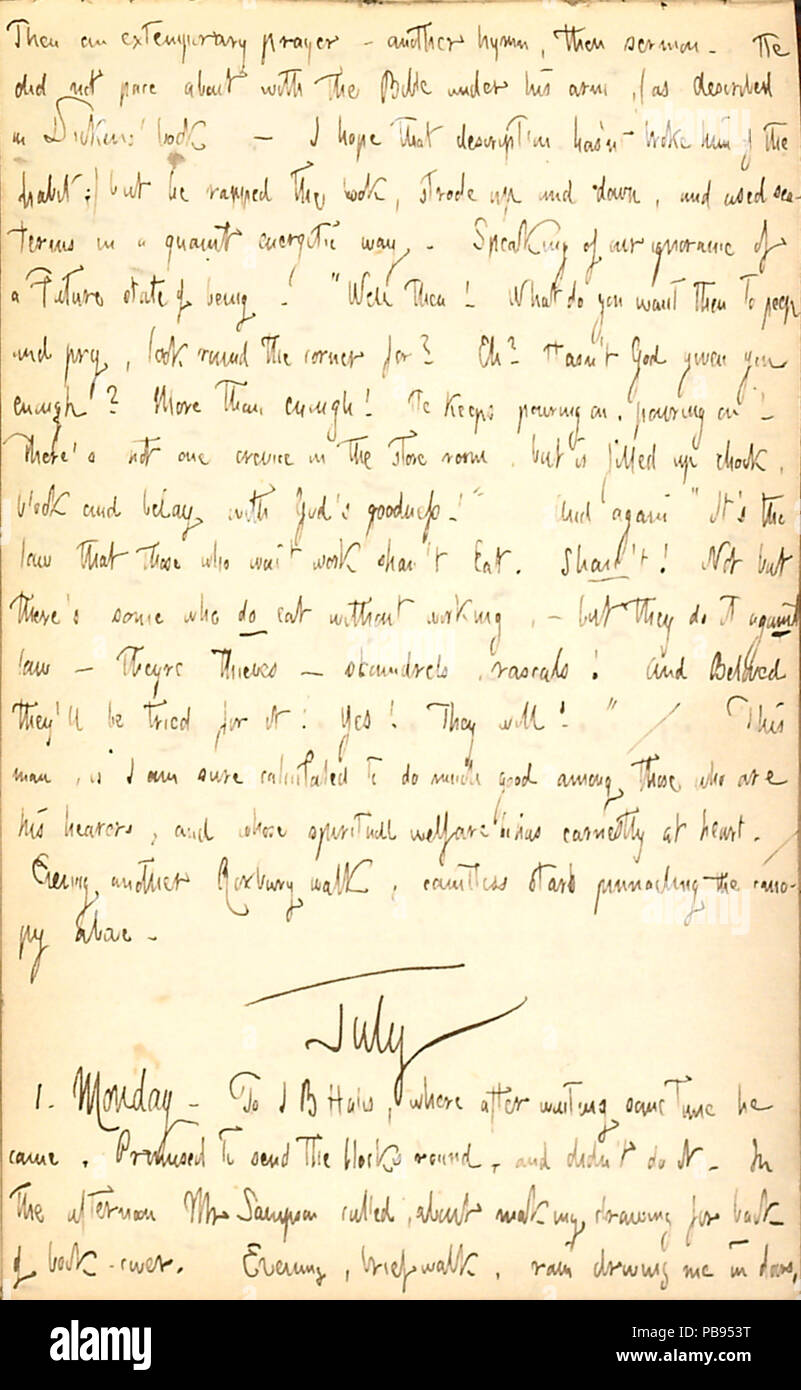 Then an extemporary prayer - another hymn, then sermon. He
did not pace about with the Bible under his arm, (as described
in Dickens' book — I hope that description hasn't broke him of the
habit;) but he rapped the book, strode up and down, and used sea-
terms in a quaint energetic way. Speaking of our ignorance of
a Future state of being - "Well then! What do you want then to peep
and pry, look round the corner for? Eh? Hasn't God given you
enough? More than enough! He keeps pouring on, pouring on!
There's not one crevice in the store room, but is filled up chock,
block and belay with God's goodness!" And again "It's the
law that those who won't work shan't Eat. Shan't! Not but
there's some who do eat without working, - but they do it against
law — theyre thieves — skoundrels, rascals! And Beloved
they'll be tried for it! Yes! They will!" / This
man, is I am sure calculated to do much good among those who are
his hearers, and whose spirituall welfare he has earnestly at heart.
Evening another Roxbury walk, countless stars pinnacling the cano-
py above -
July
1. Monday - To J B Hales, where after waiting some time he
came. Promised to send the blocks round, and didn't do it. In
the afternoon Mr Sampson called, about making drawing for back
of book-cover. Evening, brief walk, rain driving me in doors,
alamy
alamy
alamy
alamy
Image ID: PB953T
www.alamy.com